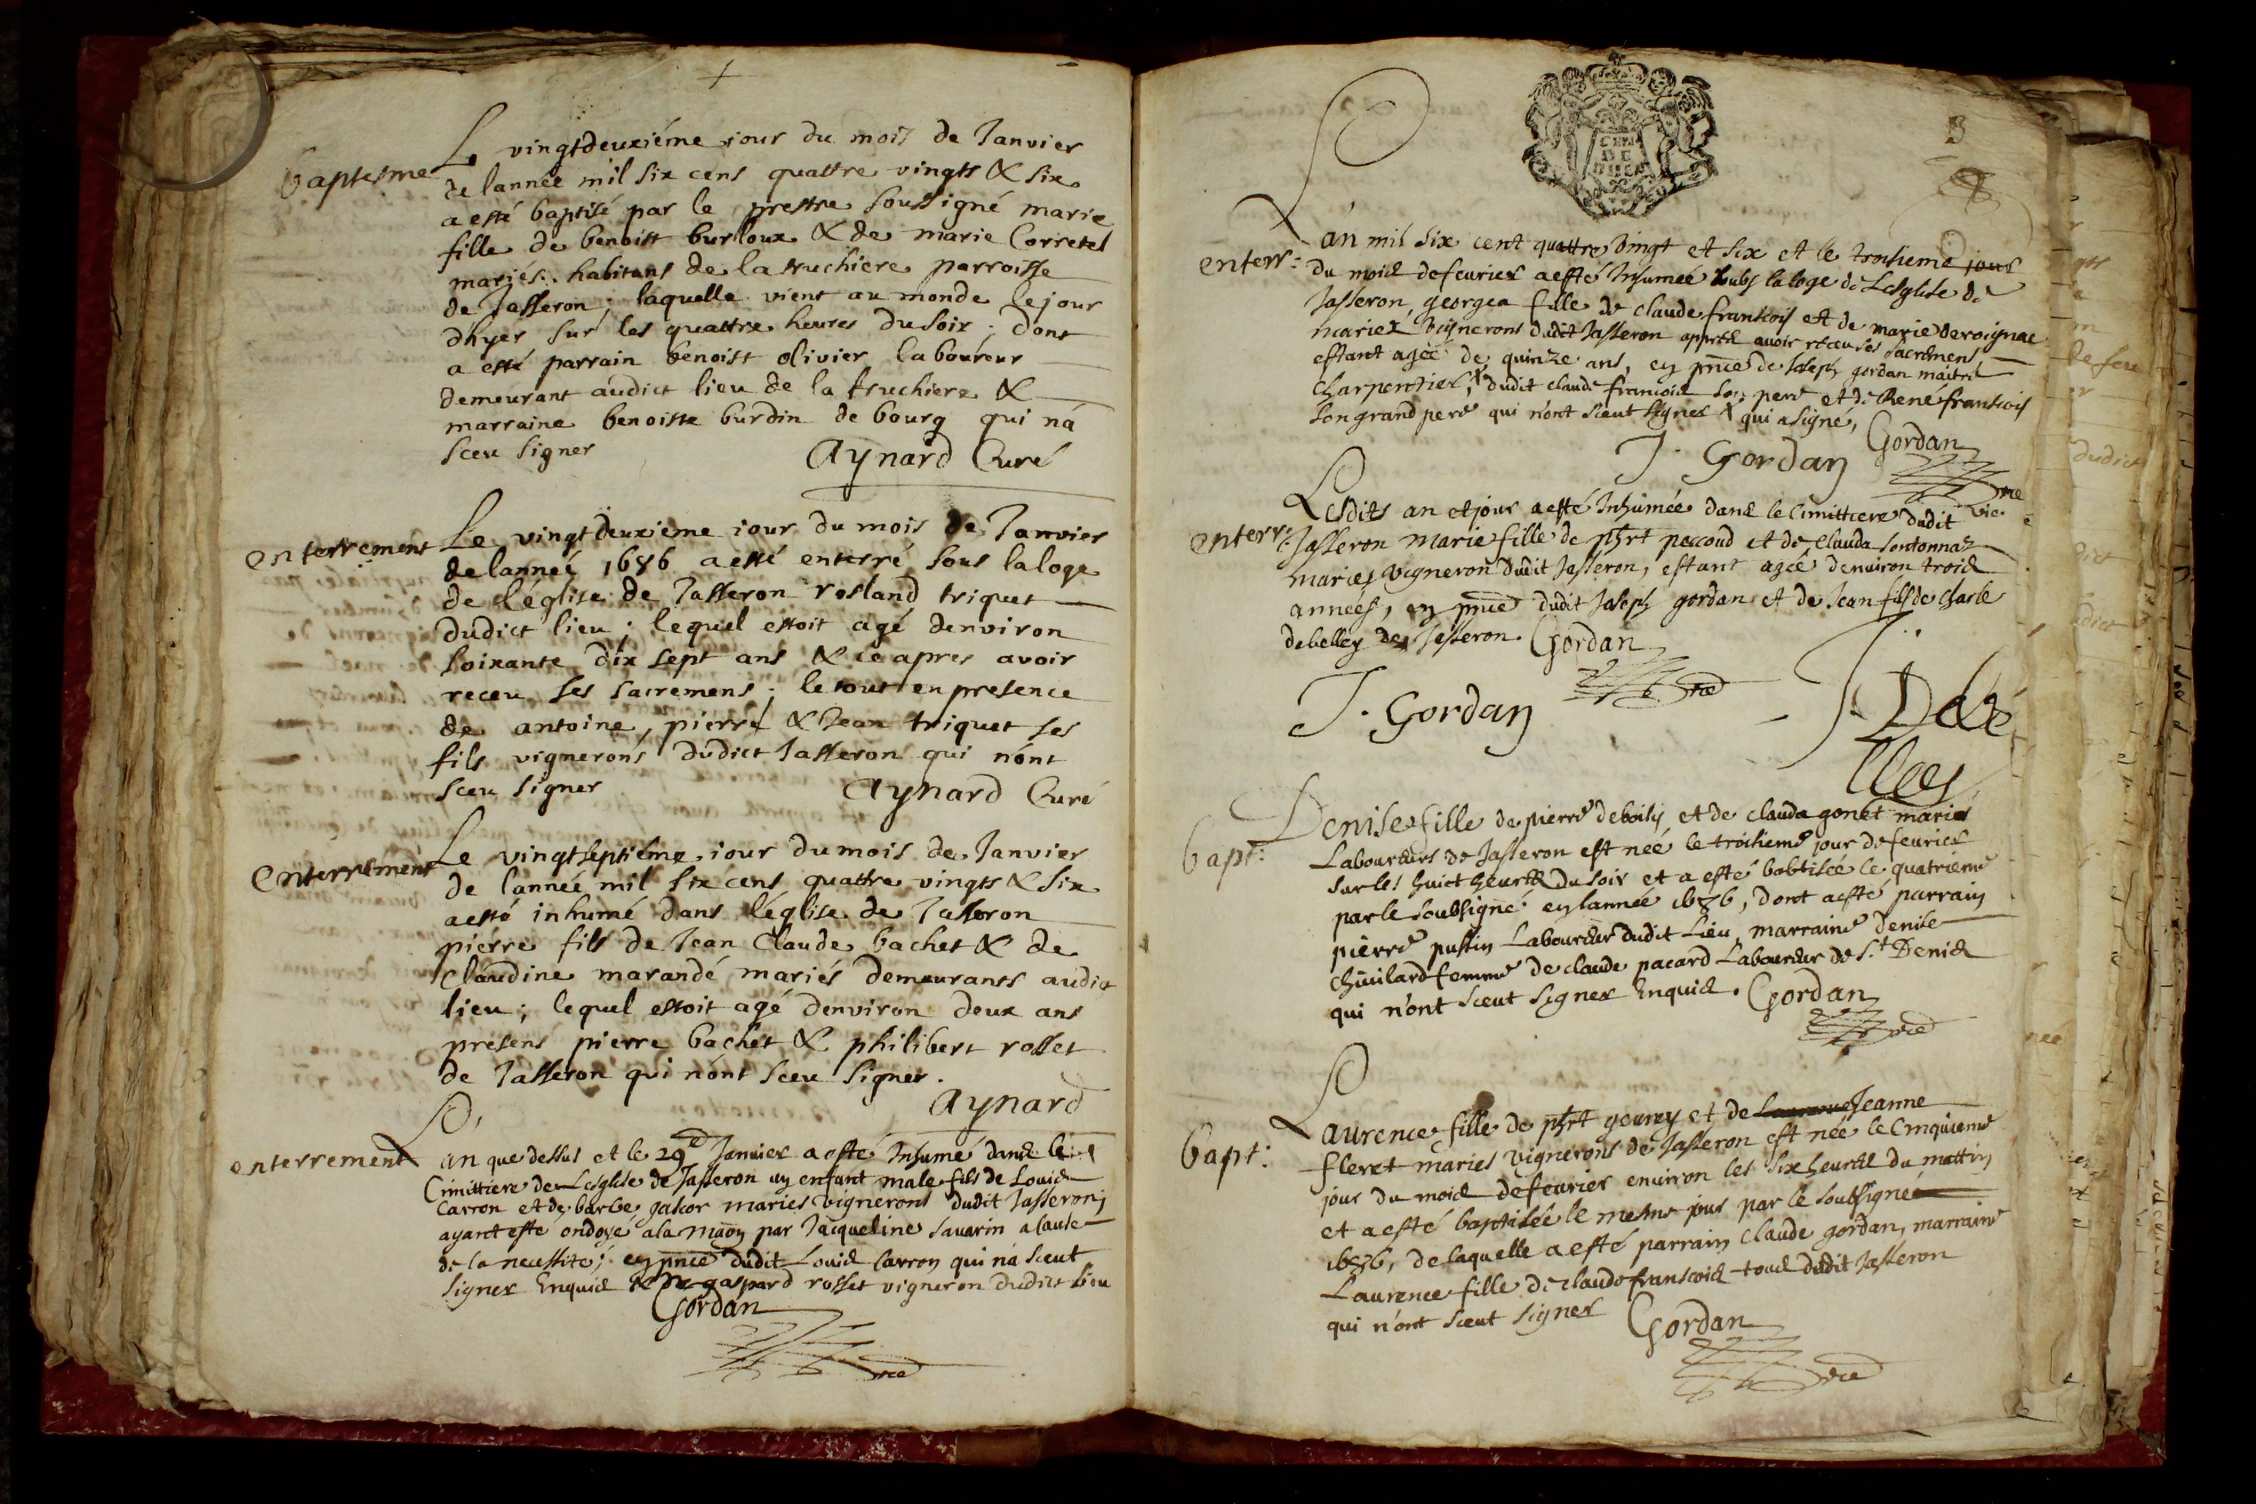 baptesme
Le vingtdeuxiéme jour du mois de Janvier
de lannée mil six cens quattre vingts & six
a esté baptisé par le prestre soussigné marie
fille de benoist burlloux & de marie Corretel
mariés habitans de la truchiere parroisse
de Jasseron; laquelle vient au monde le jour
dhyer sur les quattre heures du soir; dont
a esté parrain benoist olivier laboureur
demeurant audict lieu de la truchiere &
marraine benoiste burdin de bourg qui na
sceu signer
Aynard Curé
enterrement
Le vingtdeuxieme iour du mois de Janvier
de lanneé 1686 a esté enterré sous la loge
de l'église de Jasseron rosland triquet
dudict lieu; lequel estoit agé denviron
soixante dix sept ans & ce apres avoir
receu ses sacremens; le tout en presence
de antoine, pierre & Jean triquet ses
fils vignerons dudict Jasseron qui nónt
sceu signer
Aynard Curé
enterrement
Le vingtseptiéme iour du mois de Janvier
de l'année mil six cens quattre vingts & six
a esté inhumé dans l'église de Jasseron
piérre fils de Jean Claude bachet & de
Claudine marandé mariés demeurants audict
lieu; lequel estoit agé denviron deux ans
presens pierre bachet & philibert rosset
de Jasseron qui nónt sceu signer.
Aynard
enterrement
L'an que dessus et le 29e Janvier a esté Inhumé dans le
Cimittiere de Lesglise de Jasseron un enfant male fils de Louis
Carron et de barbe mariés vignerons dudit Jasseron
ayant esté ondoyé a la mãon par Jacqueline savarin a cause
de la necessité; en pnce dudit Louis Carron qui na sceut
signer Enquis & de gaspard rosset vigneron dudict lieu
Gordan
vice
3
enterr:
Lán mil six cent quattre vingt et six et le troisieme jour
du mois de feurier a esté Inhumeé soubs la loge de Lesglise de
Jasseron georgea fille de claude francois et de marie
mariez vignerons dudit Jasseron apprés avoir receu ses sacremens
estant agée de quinze ans, en pnce de Joseph gordan maitre
charpentier, dudit claude francois son pere et de René francois
son grand pere qui nont sceut signer qui a signé,
J. Gordan
Gordan
vice
vie
enterr:
Lesdits an et jour a esté Inhumée dans le Cimittiere dudit
Jasseron marie fille de phrt peccoud et de clauda
mariez vigneron dudit Jasseron, estant agée denuiron trois
années, en pnce dudit Joseph gordan et de Jean fils de charle
debelley de Jasseron. Gordan
vice
J. Gordan
J. Debé
lley
bapt:
Denise fille de pierre deboisy et de clauda gonet mariés
Laboureurs de Jasseron est née le troisieme jour de feurier
sur les huict heures du soir et a esté babtisée le quatrieme
par le soubsigné en lannee 1686, dont a esté parrain
pierre Laboureur dudit Lieu, marraine denise
femme de claude pacard Laboureur de St Denis
qui n'ont sceut signer Enquis. Gordan
vice
bapt:
Laurence fille de phrt et de Jeanne
fleret mariés vignerons de Jasseron est née le Cinquieme
jour du mois de feurier enuiron les six heures du mattin
et a esté baptisée le mesme jour par le soubsigné
1686, de laquelle a esté parrain claude gordan, marraine
Laurence fille de claude francois tous dudit Jasseron
qui n'ont sceut signer Gordan
vice